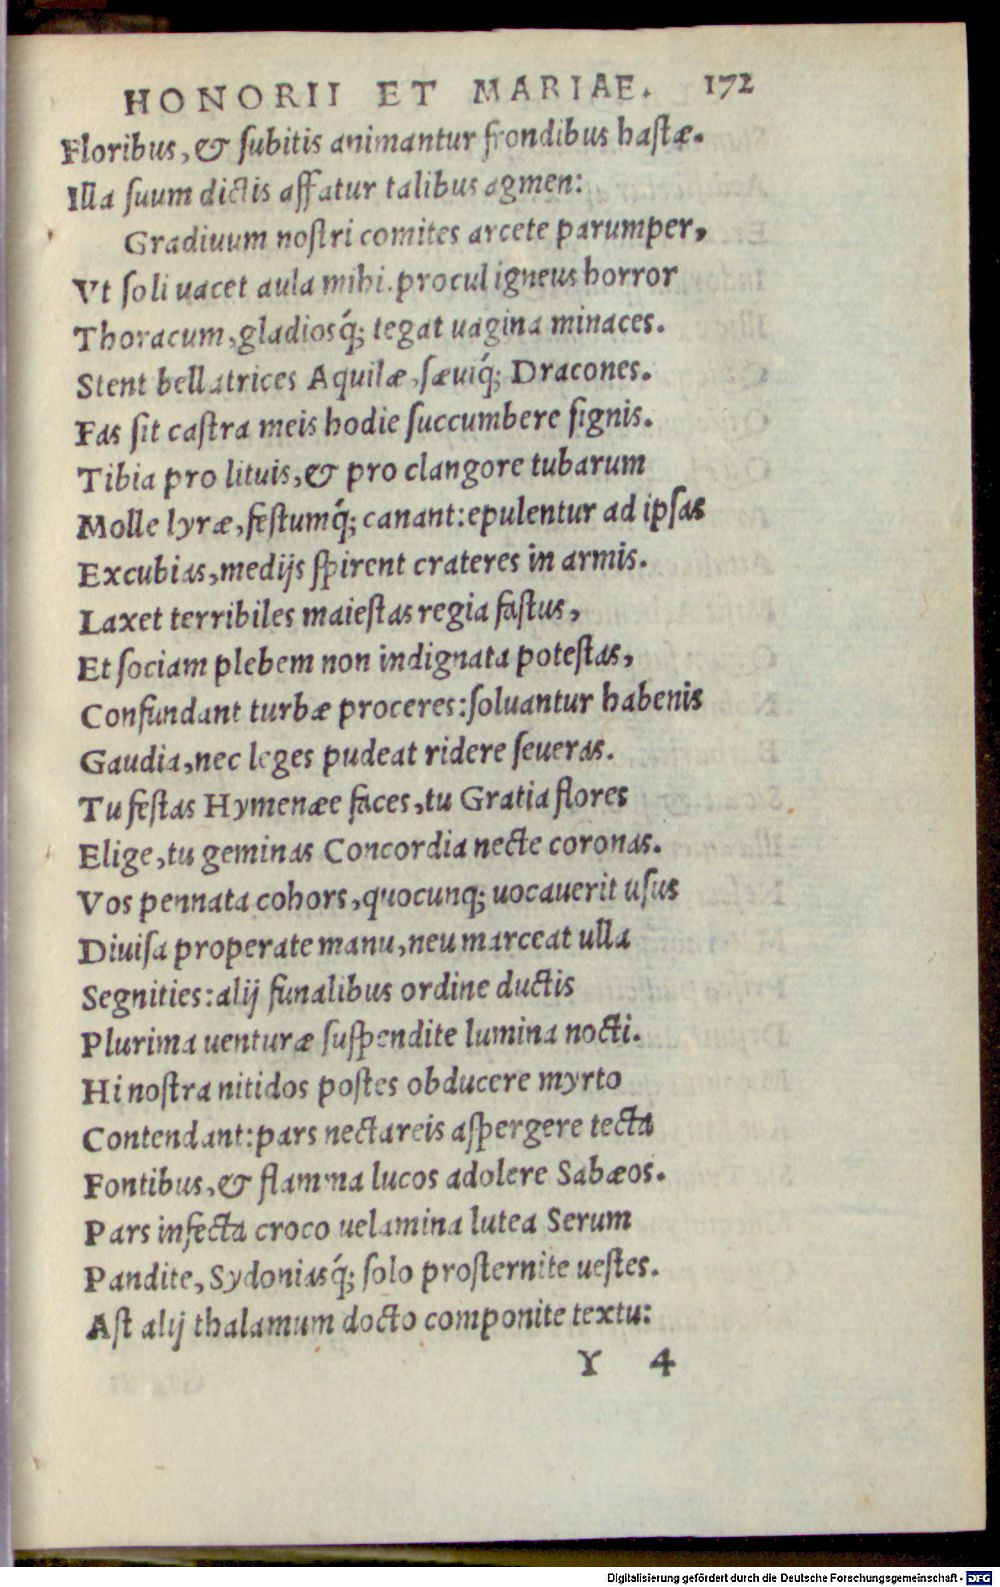 HONORII ET MARIAE. 172
Floribus, & subitis animantur frondibus hastæ.
Illa suum dictis affatur talibus agmen:
Gradiuum nostri comites arcete parumper,
Vt soli uacet aula mihi. procul igneus horror
Thoracum, gladiosq́; tegat uagina minaces.
Stent bellatrices Aquilæ, sæuiq́; Dracones.
Fas sit castra meis hodie succumbere signis.
Tibia pro lituis, & pro clangore tubarum
Molle lyræ, festumq́; canant: epulentur ad ipsas
Excubias, medijs spirent crateres in armis.
Laxet terribiles maiestas regia fastus,
Et sociam plebem non indignata potestas,
Confundant turbæ proceres: soluantur habenis
Gaudia, nec leges pudeat ridere seueras.
Tu festas Hymenæe faces, tu Gratia flores
Elige, tu geminas Concordia necte coronas.
Vos pennata cohors, quocunq; uocauerit usus
Diuisa properate manu, neu marceat ulla
Segnities: alij funalibus ordine ductis
Plurima uenturæ suspendite lumina nocti.
Hi nostra nitidos postes obducere myrto
Contendant: pars nectareis aspergere tecta
Fontibus, & flamma lucos adolere Sabæos.
Pars infecta croco uelamina lutea Serum
Pandite, Sydoniasq́; solo prosternite uestes.
Ast alij thalamum docto componite textu:
Y 4
Digitalisierung gefördert durch die Deutsche Forschungsgemeinschaft - DFG